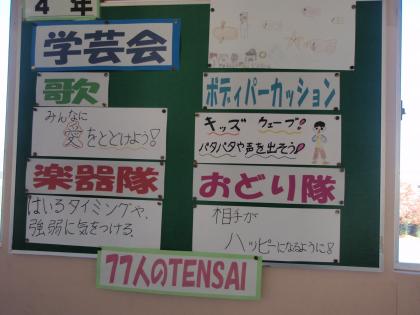 4年
学芸会
歌
みんなに
愛をとどけよう!
楽器隊
はいるタイミングや、
強弱に気をつける。
ボディパーカッション
キッズ ウェーブ!
パタパタや声を出そう!
おどり隊
相手が
ハッピーになるように!
77人のTENSAI